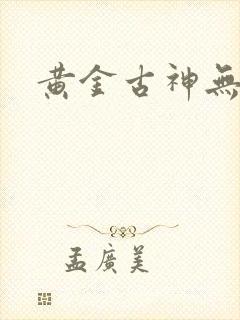 黄金古神無
孟廣美